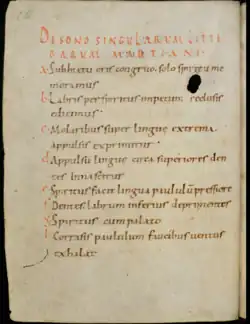 DE SONO SINGULARUM LITTE
RARUM MARTIANI
A Subhiatu oris congruo solo spiritu me
moramus
b Labris per spiritus impetum reclusis
edicimus
c Molaribus super lingue extrema
appulsis exprimitur
d Appulsu lingue circa superiores den
tes innascitur
e Spiritus facit lingua paululum pressiore
f Dentes labrum inferius deprimentes
g Spiritus cum palato
h Contractis paululum faucibus ventus
exhalat